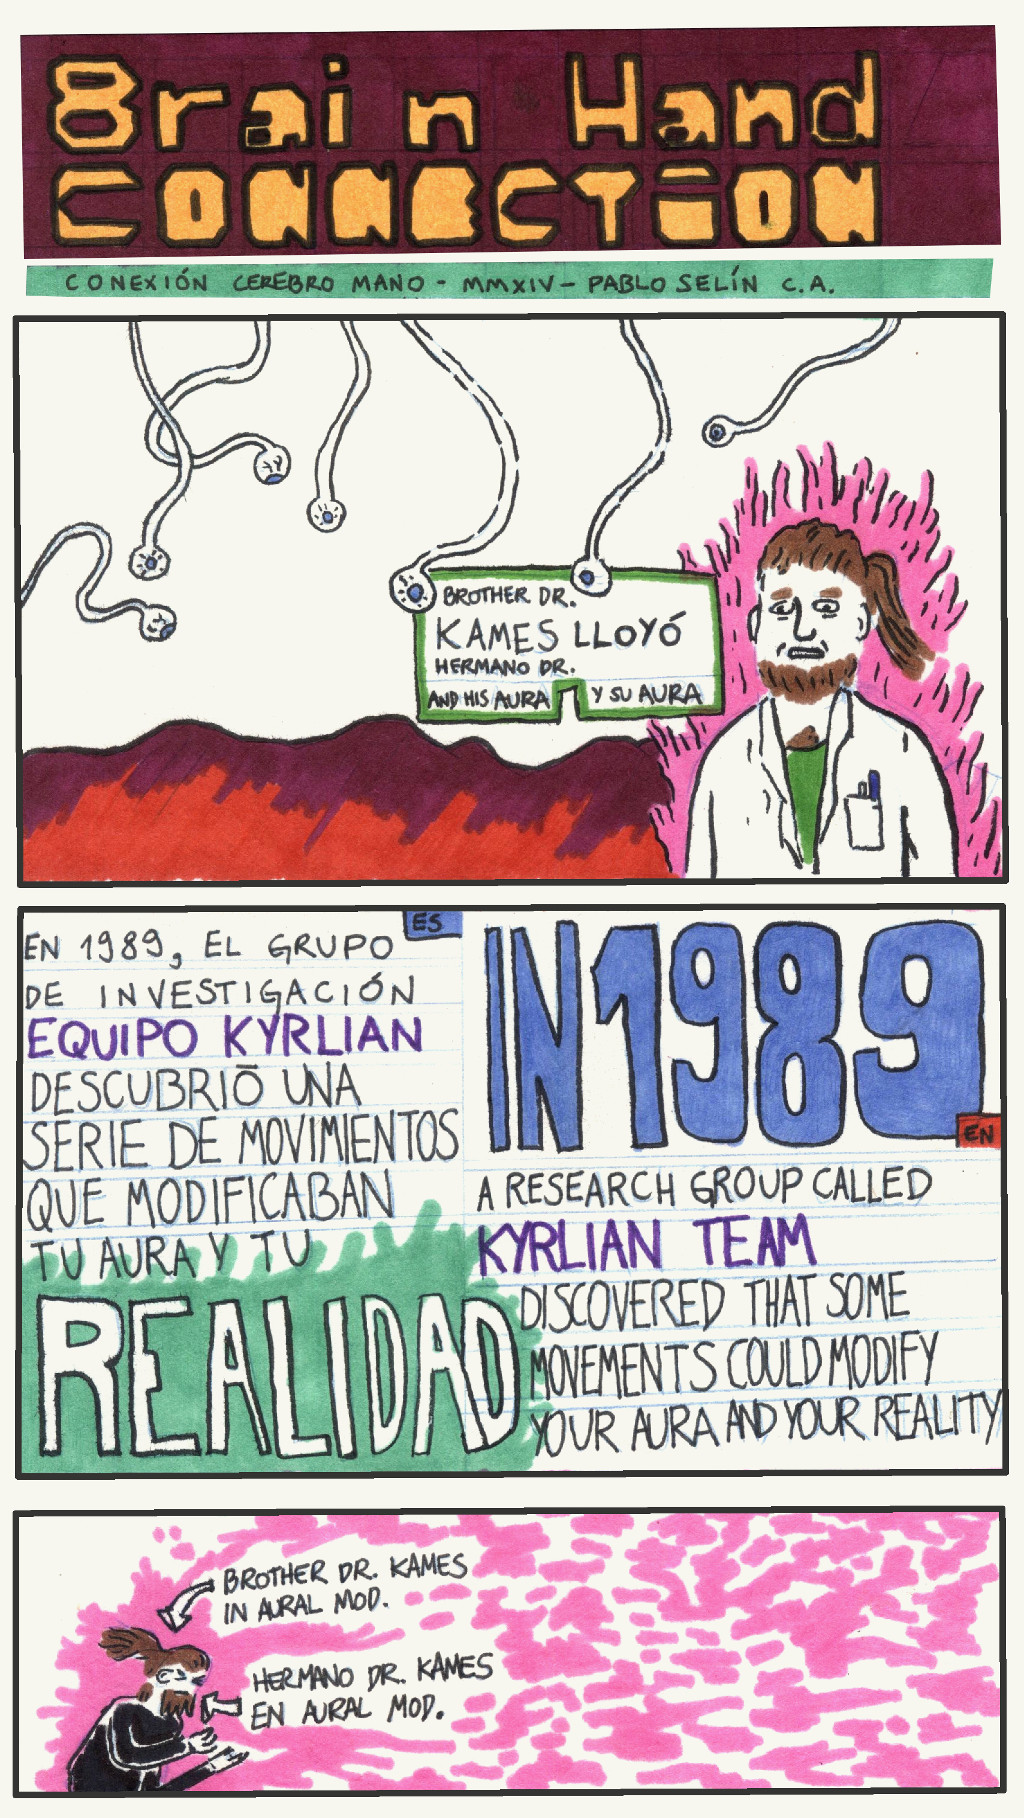 Brain Hand
CONNECTION
CONEXIÓN CEREBRO MANO - MMXIV - PABLO SELÍN C.A.
BROTHER DR.
KAMES LLOYÓ
HERMANO DR.
AND HIS AURA Y SU AURA
ES
EN 1989, EL GRUPO
DE INVESTIGACIÓN
EQUIPO KYRLIAN
DESCUBRIÓ UNA
SERIE DE MOVIMIENTOS
QUE MODIFICABAN
TU AURA Y TU
REALIDAD
IN 1989
EN
A RESEARCH GROUP CALLED
KYRLIAN TEAM
DISCOVERED THAT SOME
MOVEMENTS COULD MODIFY
YOUR AURA AND YOUR REALITY
BROTHER DR. KAMES
IN AURAL MOD.
HERMANO DR. KAMES
EN AURAL MOD.